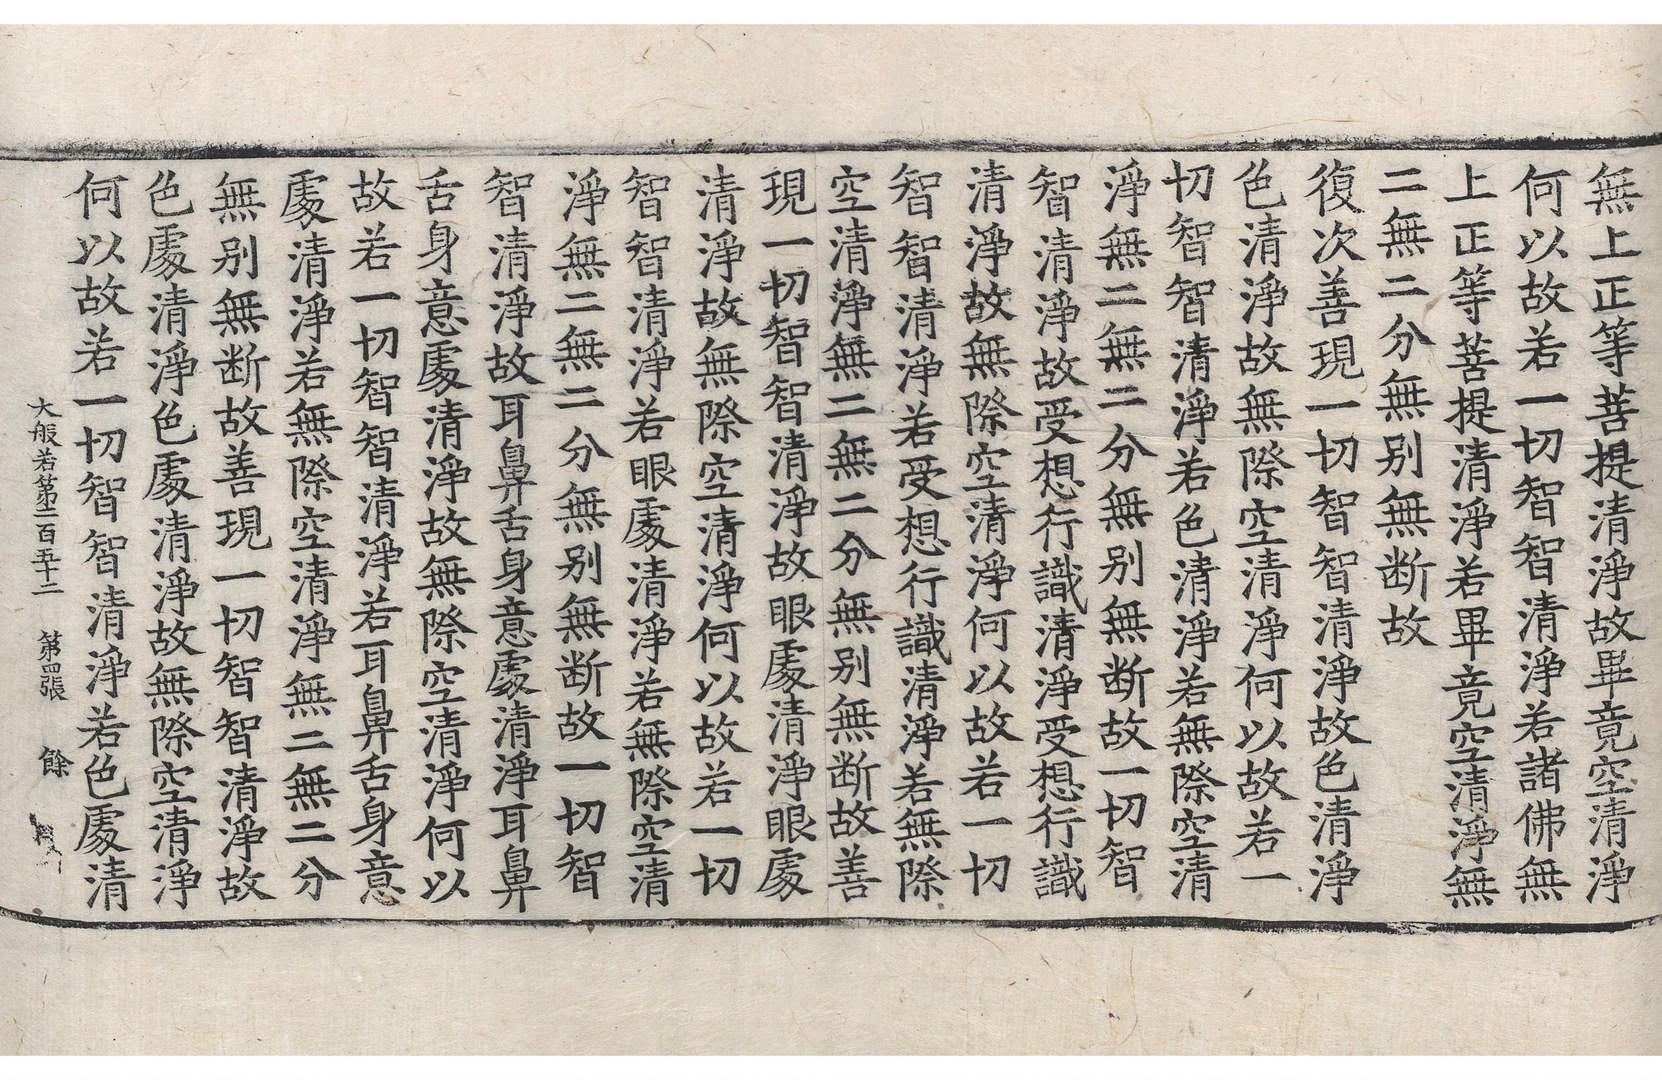 無上正等菩提清淨故畢竟空清淨
何以故若一切智智清淨若諸佛無
上正等菩提清淨若畢竟空清淨無
二無二分無别無断故
復次善現一切智智清淨故色清淨
色清淨故無際空清淨何以故若一
切智智清淨若色清淨若無際空清
淨無二無二分無别無断故一切智
智清淨故受想行識清淨受想行識
清淨故無際空清淨何以故若一切
智智清淨若受想行識清淨若無際
空清淨無二無二分無别無断故善
現一切智智清淨故眼處清淨眼處
清淨故無際空清淨何以故若一切
智智清淨若眼處清淨若無際空清
淨無二無二分無别無断故一切智
智清淨故耳鼻舌身意處清淨耳鼻
舌身意處清淨故無際空清淨何以
故若一切智智清淨若耳鼻舌身意
處清淨若無際空清淨無二無二分
無别無断故善現一切智智清淨故
色處清淨色處清淨故無際空清淨
何以故若一切智智清淨若色處清
大般若第二百五十二 第四張 餘